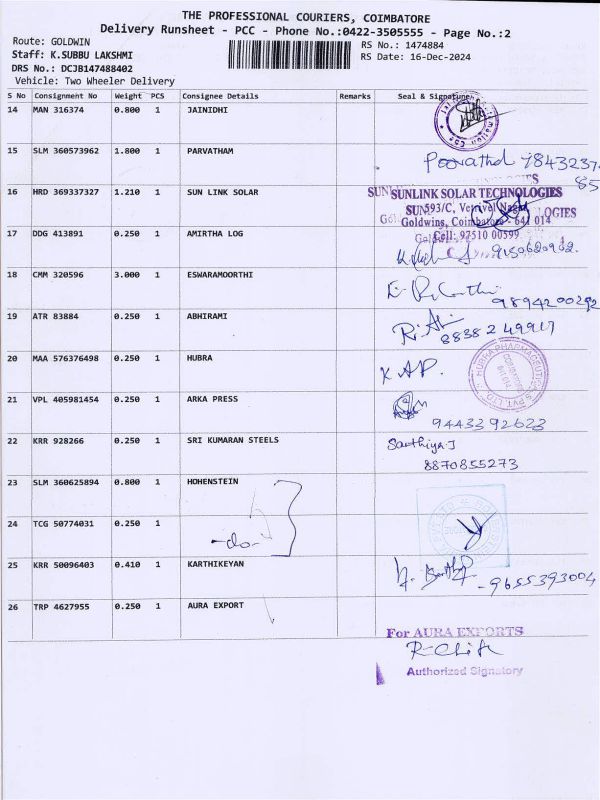 THE PROFESSIONAL COURIERS, COIMBATORE
Delivery Runsheet - PCC - Phone No.:0422-3505555 - Page No.:2
Route: GOLDWIN
RS No.: 1474884
Staff: K.SUBBU LAKSHMI
RS Date: 16-Dec-2024
DRS No.: DCJB147488402
Vehicle: Two Wheeler Delivery
S No Consignment No Weight PCS Consignee Details Remarks Seal & Signature
14 MAN 316374 0.800 1 JAINIDHI
15 SLM 360573962 1.800 1 PARVATHAM
16 HRD 369337327 1.210 1 SUN LINK SOLAR
SUNLINK SOLAR TECHNOLOGIES
593/C, Vetrivel Nagar
Goldwins, Coimbatore - 641 014
Cell: 97510 00599
17 DDG 413891 0.250 1 AMIRTHA LOG
9150620902
18 CMM 320596 3.000 1 ESWARAMOORTHI
9894200292
19 ATR 83884 0.250 1 ABHIRAMI
20 MAA 576376498 0.250 1 HUBRA
K AP.
HUBRA PHARMACEUTICALS PVT. LTD
21 VPL 405981454 0.250 1 ARKA PRESS
9443392623
22 KRR 928266 0.250 1 SRI KUMARAN STEELS
Santhiya.J
8870855273
23 SLM 360625894 0.800 1 HOHENSTEIN
24 TCG 50774031 0.250 1
-do-
25 KRR 50096403 0.410 1 KARTHIKEYAN
- 9655393004
26 TRP 4627955 0.250 1 AURA EXPORT
For AURA EXPORTS
Authorized Signatory